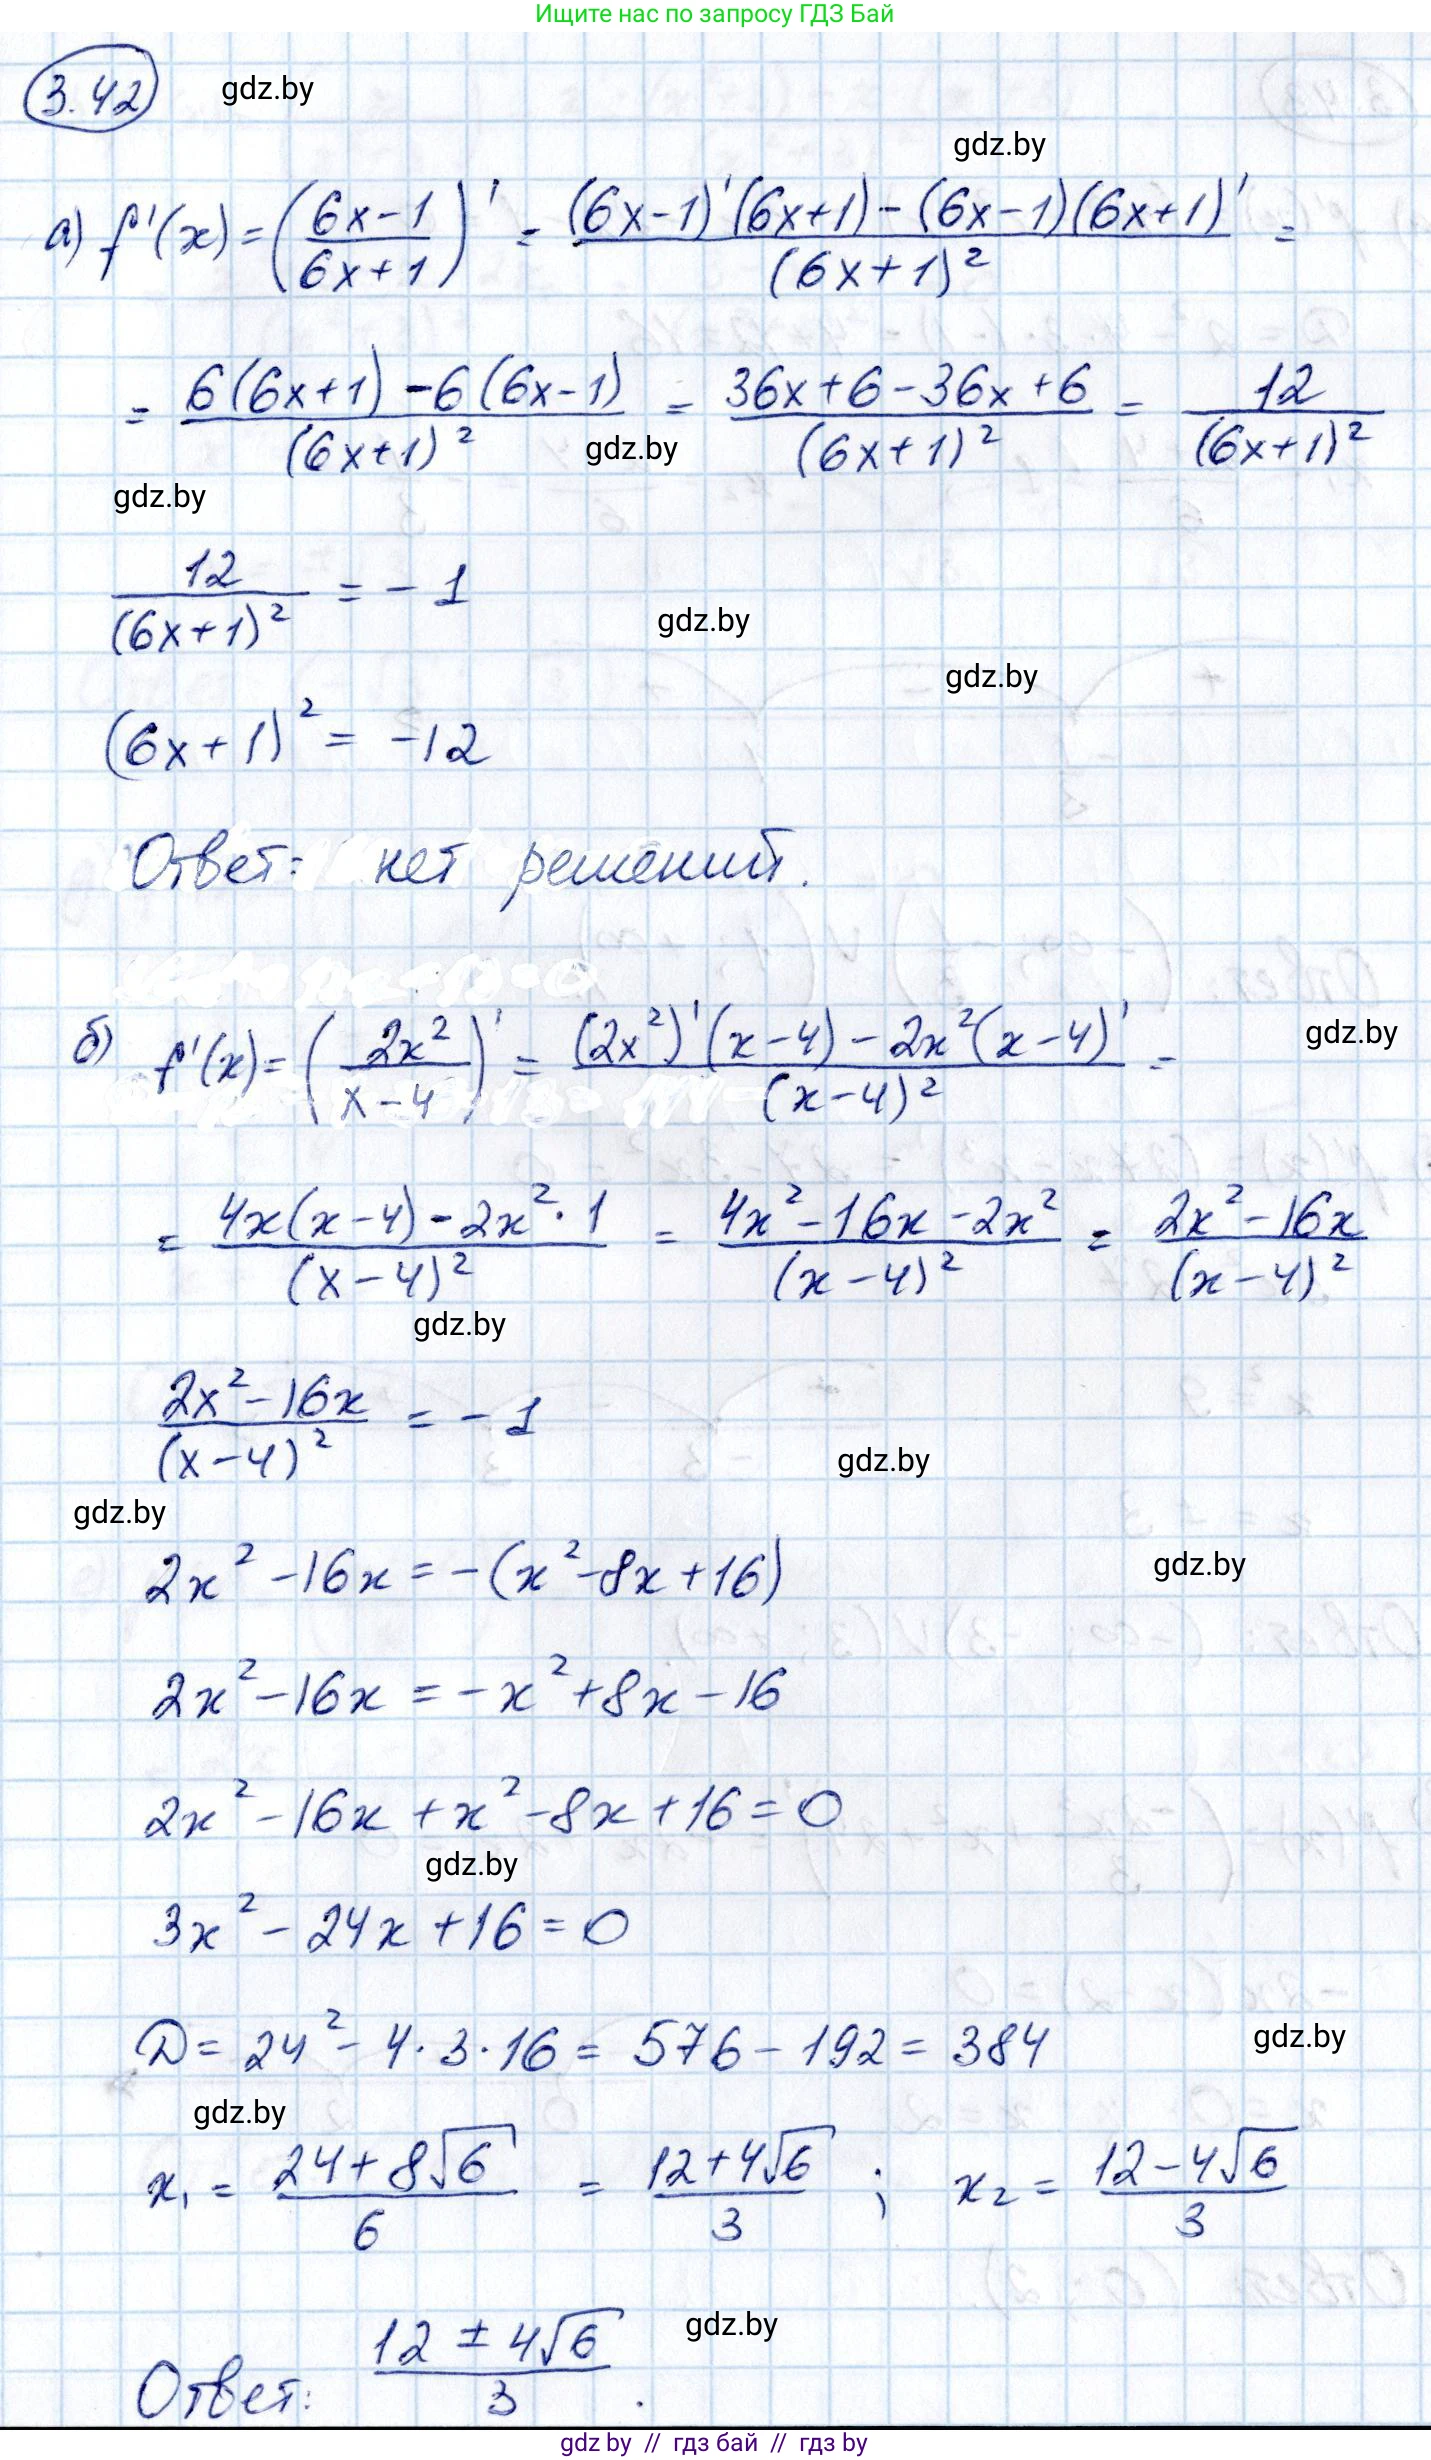 Ищите нас по запросу ГДЗ Бай
3.42
gdz.by
gdz.by
gdz.by
а) f'(x) = ((6x-1)/(6x+1))' = ((6x-1)'(6x+1) - (6x-1)(6x+1)')/(6x+1)² =
= (6(6x+1) - 6(6x-1))/(6x+1)² = (36x+6-36x+6)/(6x+1)² = 12/(6x+1)²
gdz.by
gdz.by
12/(6x+1)² = -1
gdz.by
gdz.by
(6x+1)² = -12
Ответ: нет решений.
gdz.by
б) f'(x) = (2x²/(x-4))' = ((2x²)'(x-4) - 2x²(x-4)')/(x-4)² =
= (4x(x-4) - 2x²·1)/(x-4)² = (4x²-16x-2x²)/(x-4)² = (2x²-16x)/(x-4)²
gdz.by
(2x²-16x)/(x-4)² = -1
gdz.by
gdz.by
2x² - 16x = -(x²-8x+16)
gdz.by
2x² - 16x = -x² + 8x - 16
2x² - 16x + x² - 8x + 16 = 0
gdz.by
3x² - 24x + 16 = 0
D = 24² - 4·3·16 = 576 - 192 = 384
gdz.by
gdz.by
x₁ = (24+8√6)/6 = (12+4√6)/3 ; x₂ = (12-4√6)/3
gdz.by
Ответ: (12 ± 4√6)/3.
gdz.by // гдз бай // гдз by